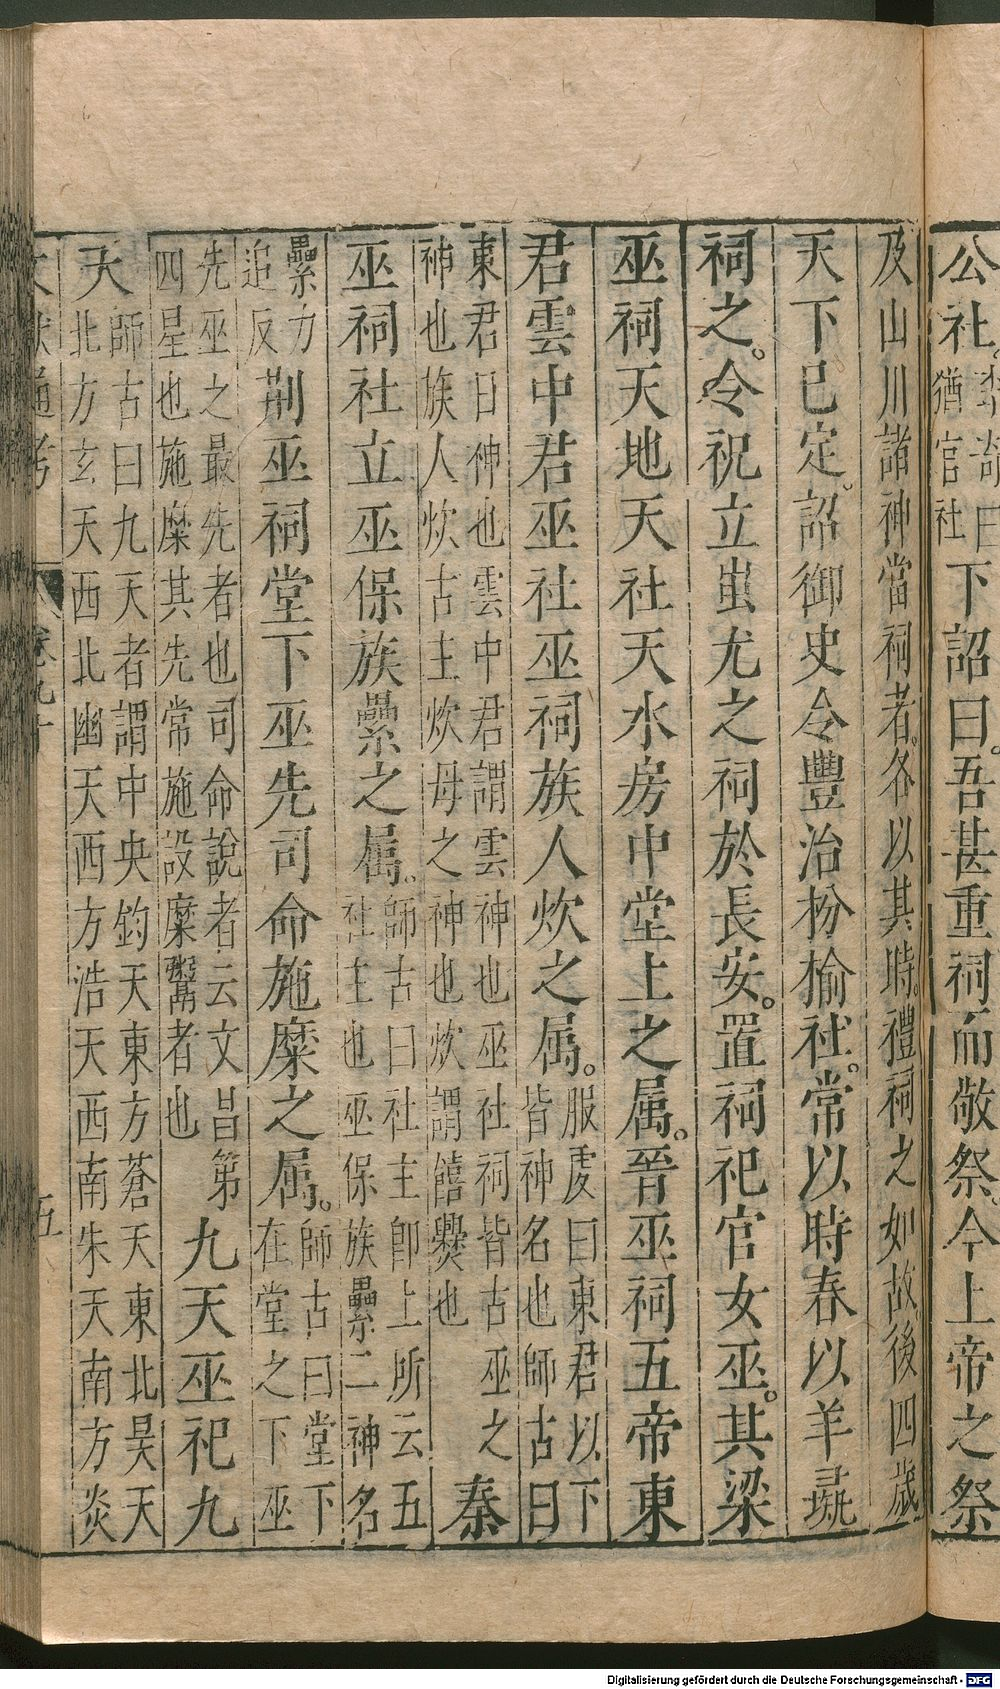 公社。李奇曰猶官社下詔曰。吾甚重祠而敬祭。今上帝之祭
及山川諸神當祠者。各以其時。禮祠之如故。後四歲
天下已定。詔御史令豐治枌榆社。常以時春以羊彘
祠之。令祝立蚩尤之祠於長安。置祠祀官女巫。其梁
巫祠天地天社天水房中堂上之属。晉巫祠五帝東
君雲中君巫社巫祠族人炊之属。服虔曰東君以下皆神名也師古曰
東君日神也雲中君謂雲神也巫社祠皆古巫之神也族人炊古主炊母之神也炊謂饎爨也秦
巫祠社立巫保族纍之属。師古曰社主卽上所云五社主也巫保族纍二神名
纍力追反荆巫祠堂下巫先司命施糜之属。師古曰堂下在堂之下巫
先巫之最先者也司命說者云文昌第四星也施糜其先常施設糜鬻者也九天巫祀九
天師古曰九天者謂中央鈞天東方蒼天東北旻天北方玄天西北幽天西方浩天西南朱天南方炎
文獻通考 卷九十 五
Digitalisierung gefördert durch die Deutsche Forschungsgemeinschaft - DFG